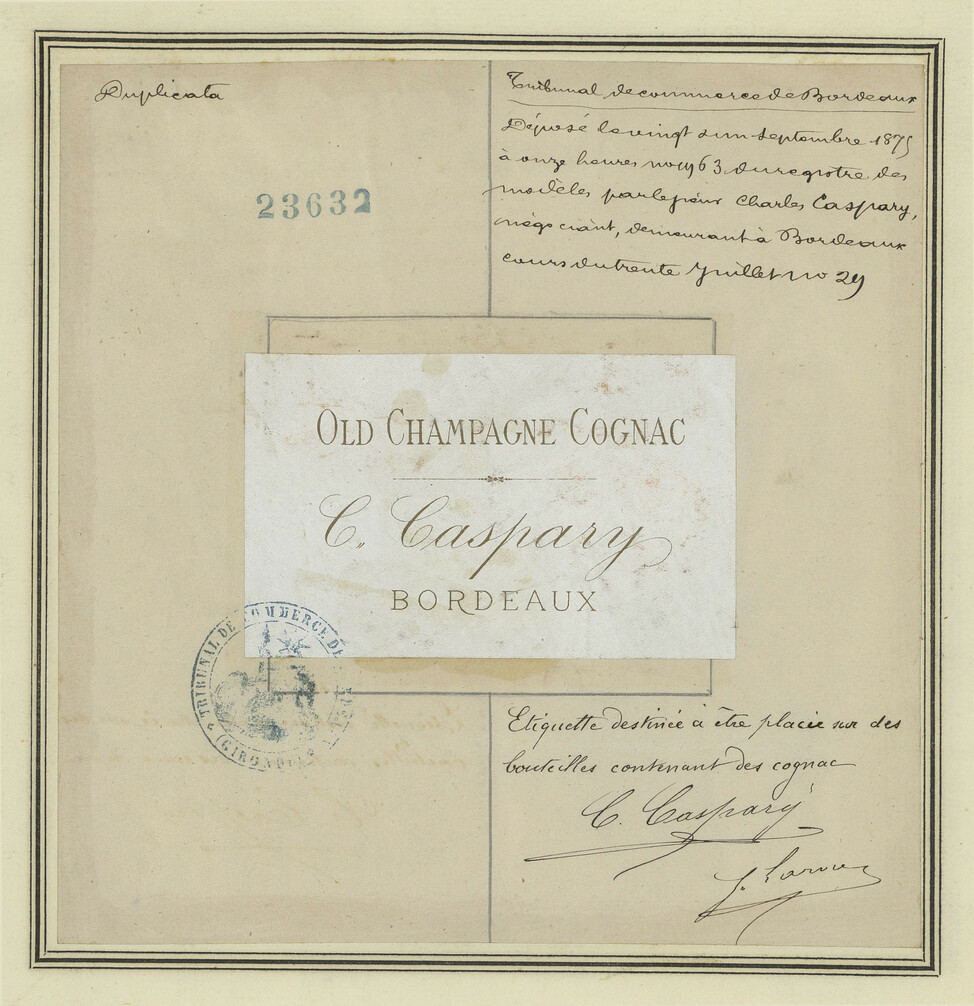 Duplicata
23632
Tribunal de commerce de Bordeaux
Déposé le vingt un septembre 1875
à onze heures no 1963 du registre des
modèles par le sieur Charles Caspary,
négociant, demeurant à Bordeaux
cours du trente Juillet no 29
OLD CHAMPAGNE COGNAC
C. Caspary
BORDEAUX
TRIBUNAL DE COMMERCE DE
(GIRONDE)
Etiquette destinée à être placée sur des
bouteilles contenant des cognac
C. Caspary